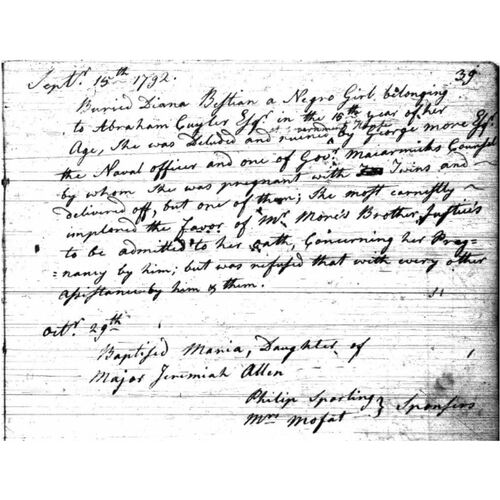 Septr. 15th 1792. 39
Buried Diana Bestian a Negro Girl belonging
to Abraham Cuyler Esqr. in the 15th year of her
Age, She was Deluded and ruined by George More Esqr.
the Naval officer and one of Govr. Macarmicks Counsel
by whom She was pregnant with Twins and
delivered off, but one of them; She most earnestly
implored the Favor of Mr. More's Brother Justices
to be admitted to her oath, Concerning her Preg=
=nancy by him; but was refused that with every other
assistance by him & them.
Octr. 29th
Baptised Maria, Daughter of
Major Jeremiah Allen
Philip Sparling } Sponsers
Mrs Mofat